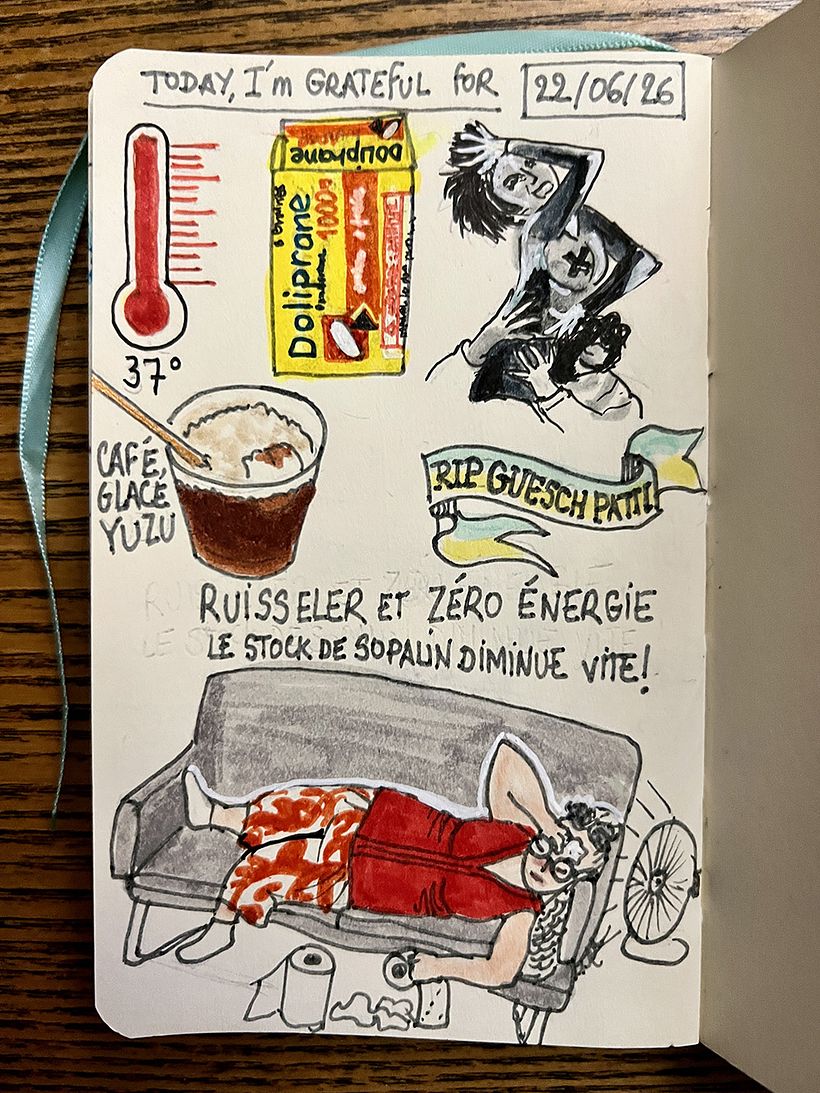 TODAY, I'm GRATEFUL FOR
22/06/26
37°
DOLIPRANE
Doliprane
1000
CAFÉ,
GLACE
YUZU
RIP GUESCH PATTI!
RUISSELER ET ZÉRO ÉNERGIE
LE STOCK DE SOPALIN DIMINUE VITE!